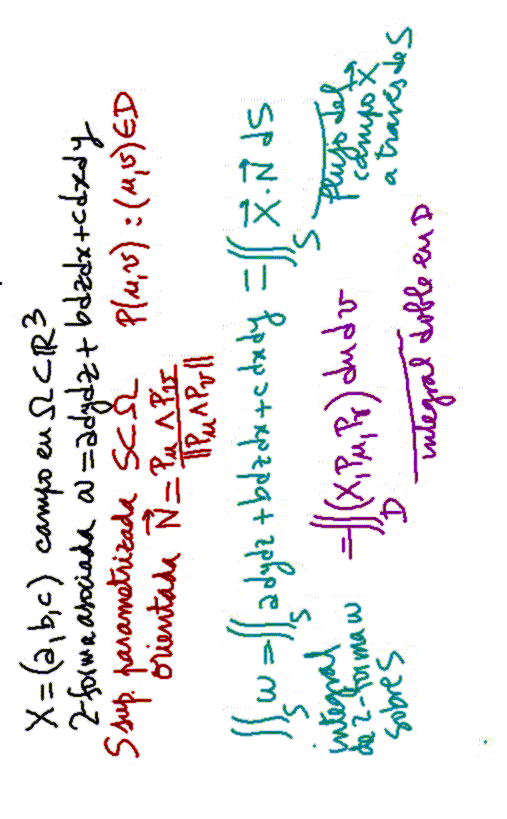 X=(a,b,c) campo en Ω⊂ℝ³
2-forma asociada ω=adydz+bdzdx+cdxdy
S sup. parametrizada S⊂Ω P(u,v):(u,v)∈D
orientada N⃗ = Pu∧Pv / ||Pu∧Pv||
∬_S ω = ∬_S adydz+bdzdx+cdxdy = ∬_S X⃗·N⃗ dS
integral
de 2-forma ω
sobre S
flujo del
campo X
a través de S
=∬_D (X,Pu,Pv) dudv
integral doble en D